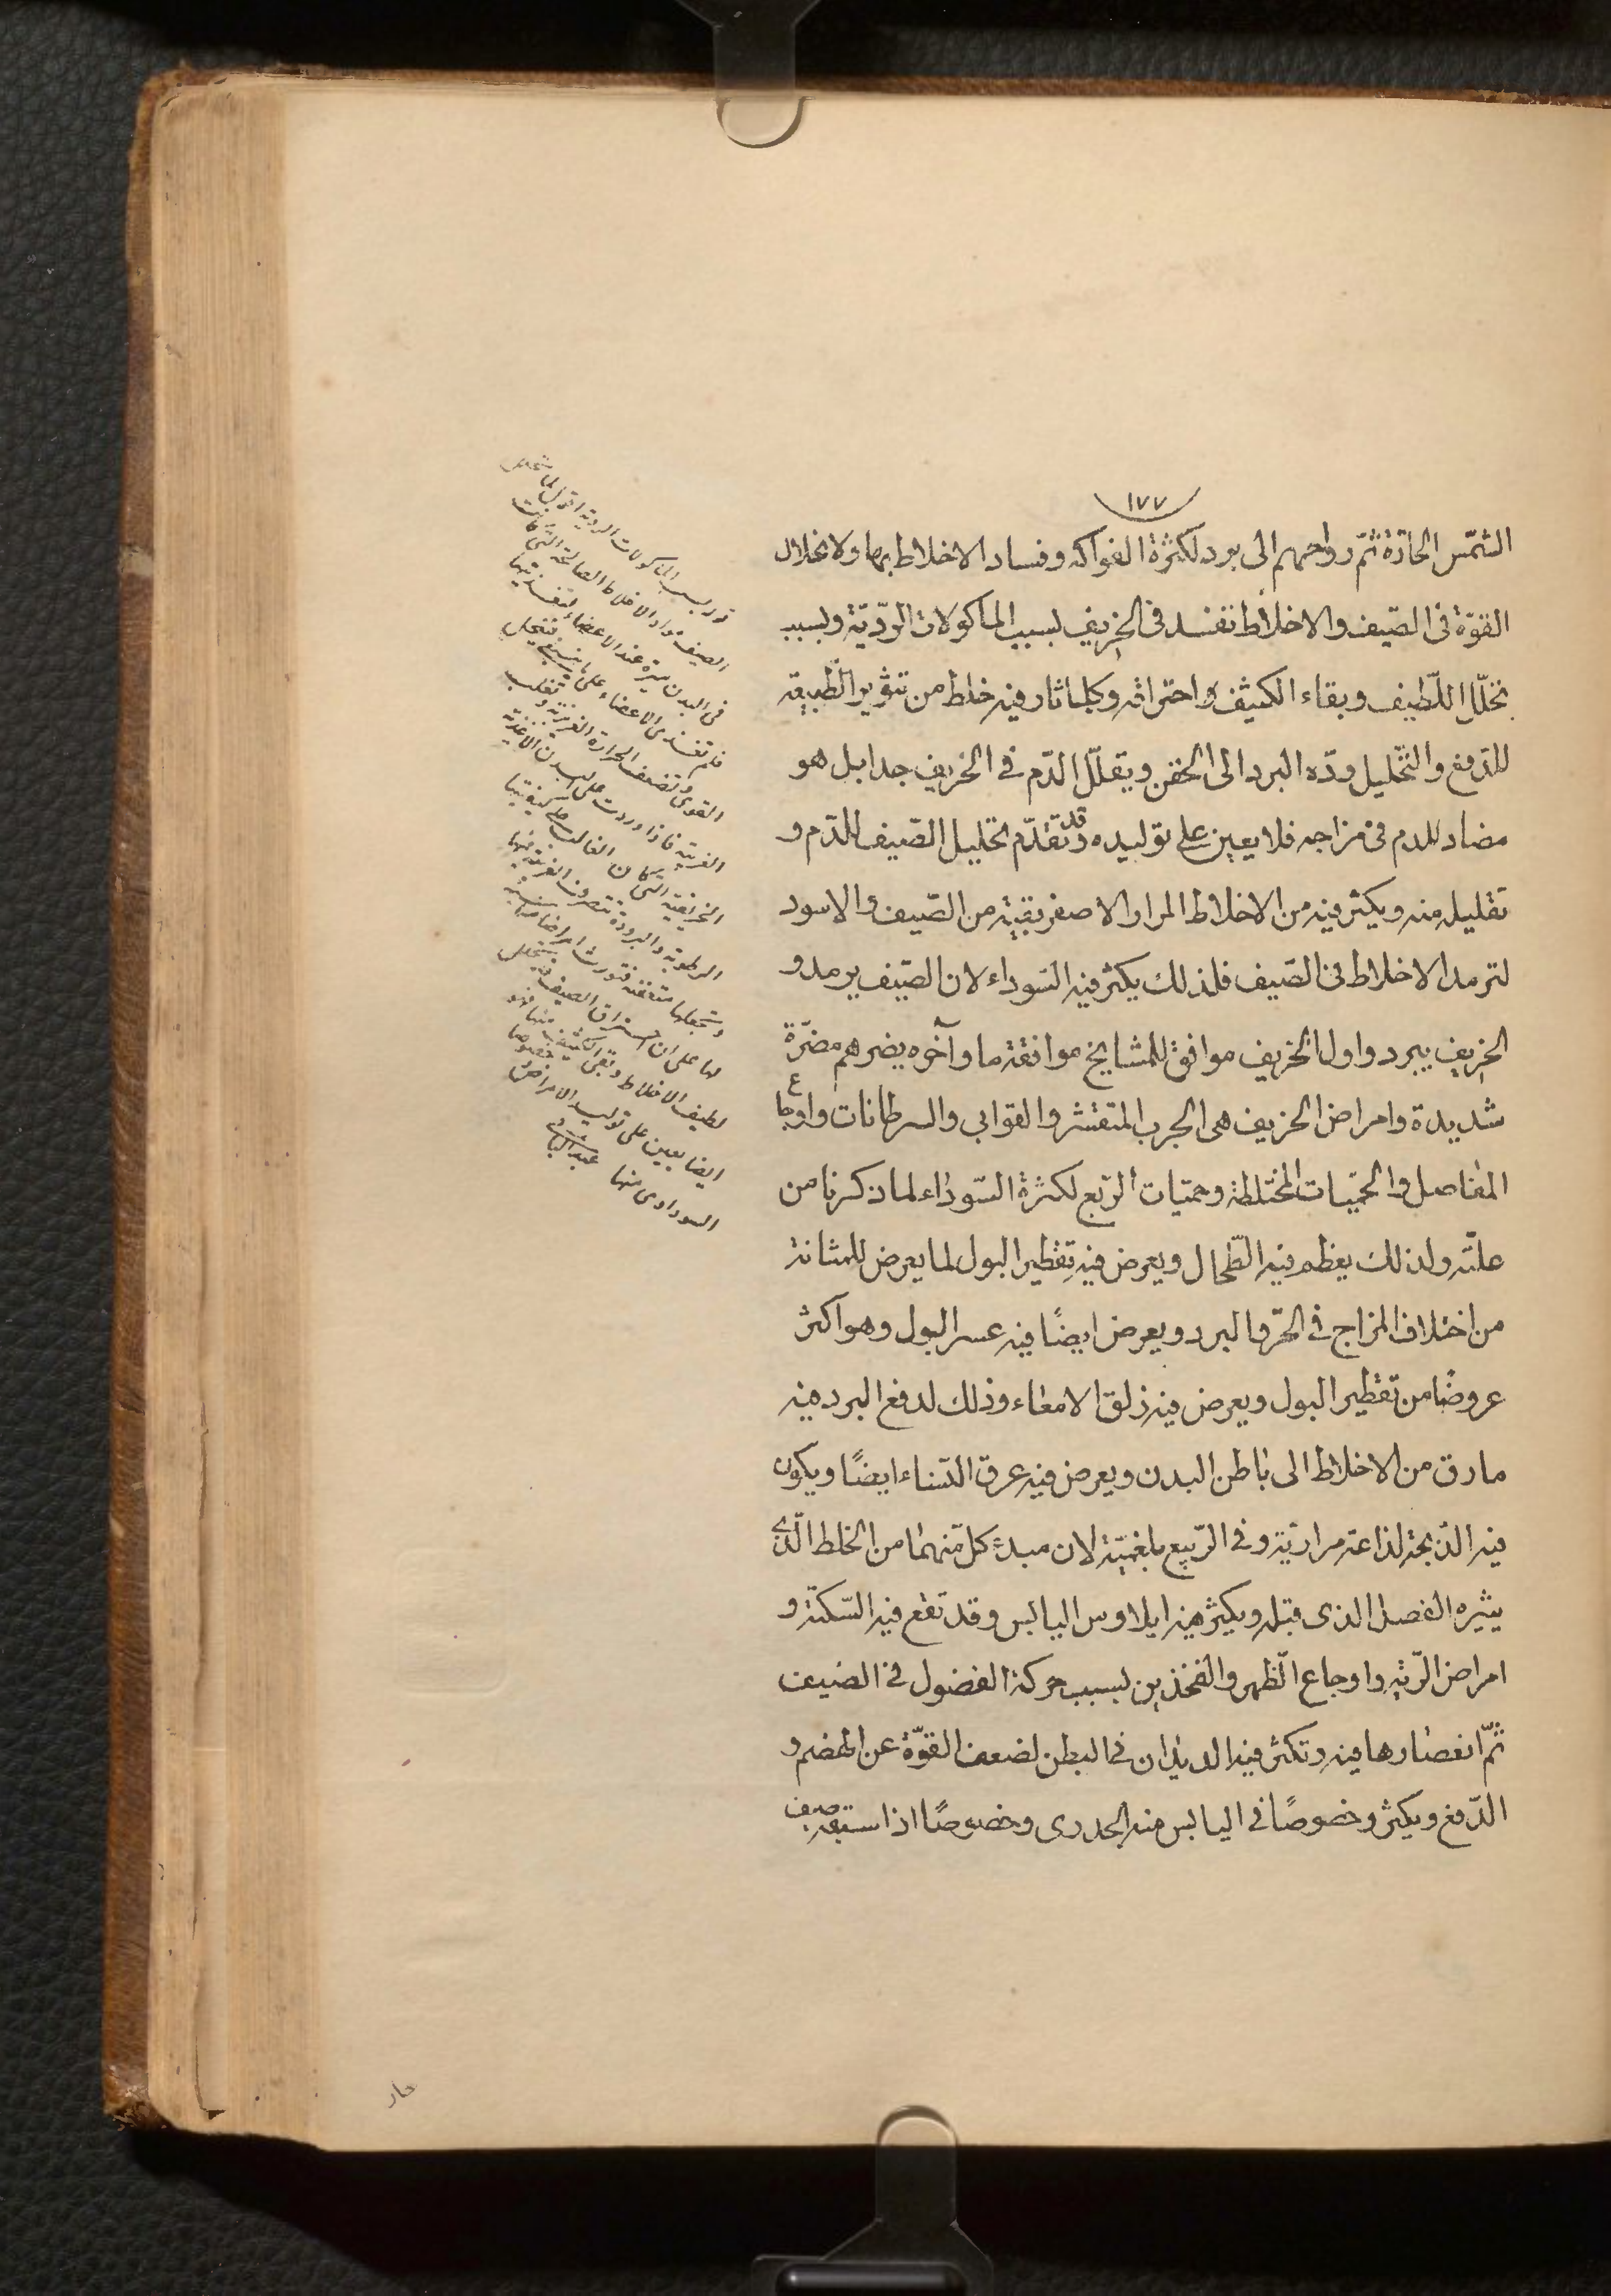 ١٧٧
الشمس الحارة ثم رواحهم الى برد لكثرة الفواكه وفساد الاخلاط بها ولانحلال
القوّة فى الصّيف والاخلاط تفسد فى الخريف بسبب الماكولات الرّديّة وبسبب
تخلّل اللّطيف وبقاء الكثيف واحتراقه وكلما ثار فيه خلط من تثوير الطّبيعة
للدّفع والتّحليل ردّه البرد الى الحقن ويقلّل الدّم فى الخريف جدا بل هو
مضاد للدم فى مزاجه فلا يعين على توليده وقد تقدّم تحليل الصّيف للدّم و
تقليله منه ويكثر فيه من الاخلاط المرار الاصفر بقيّة من الصّيف والاسود
لترمد الاخلاط فى الصّيف فلذلك يكثر فيه السّوداء لان الصّيف يرمد و
الخريف يبرد واول الخريف موافق للمشايخ موافقة ما وآخره يضرهم مضرّة
شديدة وامراض الخريف هى الجرب المتقشر والقوابى والسرطانات واوجاع
المفاصل والحميّات المختلطة وحميّات الرّبع لكثرة السّوداء لما ذكرنا من
علّته ولذلك يعظم فيه الطّحال ويعرض فيه تقطير البول لما يعرض للمثانة
من اختلاف المزاج فى الحرّ والبرد ويعرض ايضًا فيه عسر البول وهو اكثر
عروضًا من تقطير البول ويعرض فيه زلق الامعاء وذلك لدفع البرد فيه
ما رق من الاخلاط الى باطن البدن ويعرض فيه عرق النّساء ايضًا ويكون
فيه الذّبحة لذاعة مراريّة وفى الرّبيع بلغميّة لان مبدء كلّ منهما من الخلط الّذى
يثيره الفصل الذى قبله ويكثر فيه ايلاوس اليابس وقد تقع فيه السّكتة و
امراض الرّئة واوجاع الظّهر والفخذين بسبب حركة الفضول فى الصّيف
ثمّ انعصارها فيه وتكثر فيه الديدان فى البطن لضعف القوّة عن الهضم و
الدّفع ويكثر وخصوصًا فى اليابس منه الجدرى وخصوصًا اذا سبقه صيف
قوله بسبب الماكولات الردية اقول لما تخلل
الصيف مواد الاخلاط الصالحة التى كانت
فى البدن عند الاعضاء لتغذيتها
فلم تغتذى الاعضاء على ما ينبغى فتنحل
القوى وتضعف الحرارة الغريزية وتغلب
الغريبة فاذا وردت على البدن الاغذية
الخريفية التى كان الغالب على كيفيتها
الرطوبة والبرودة تتصرف الغريبة فيها
وتجعلها متعفنة فتورث امراضا مناسبة
لها على ان احتراق الصيف
لطيف الاخلاط وتبقى الكثيف منها فهو
ايضا يعين على توليد الامراض خصوصا
السوداوى منها
حار